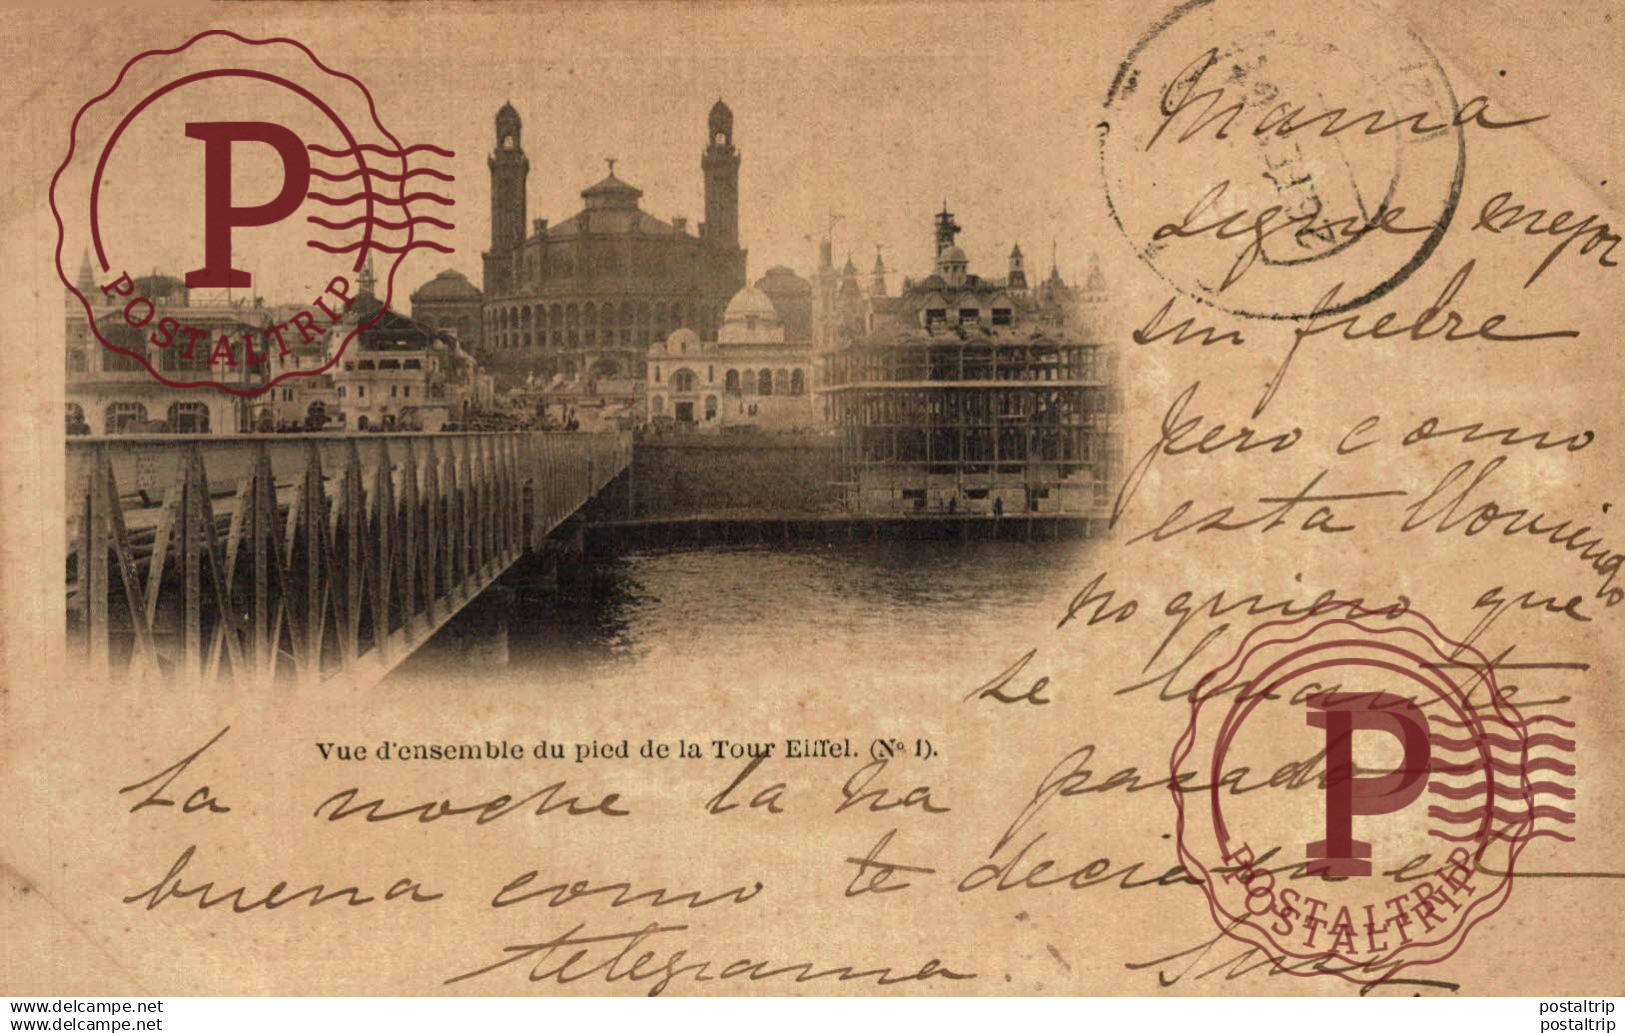 P
POSTALTRIP
Mamá
sigue mejor
sin fiebre
pero como
esta lloviendo
no quiero que
se levante
Vue d'ensemble du pied de la Tour Eiffel. (No 1).
La noche la ha pasado
buena como te decia en el
telegrama. Suzy
P
POSTALTRIP
delcampe.net
delcampe.net
postaltrip
postaltrip